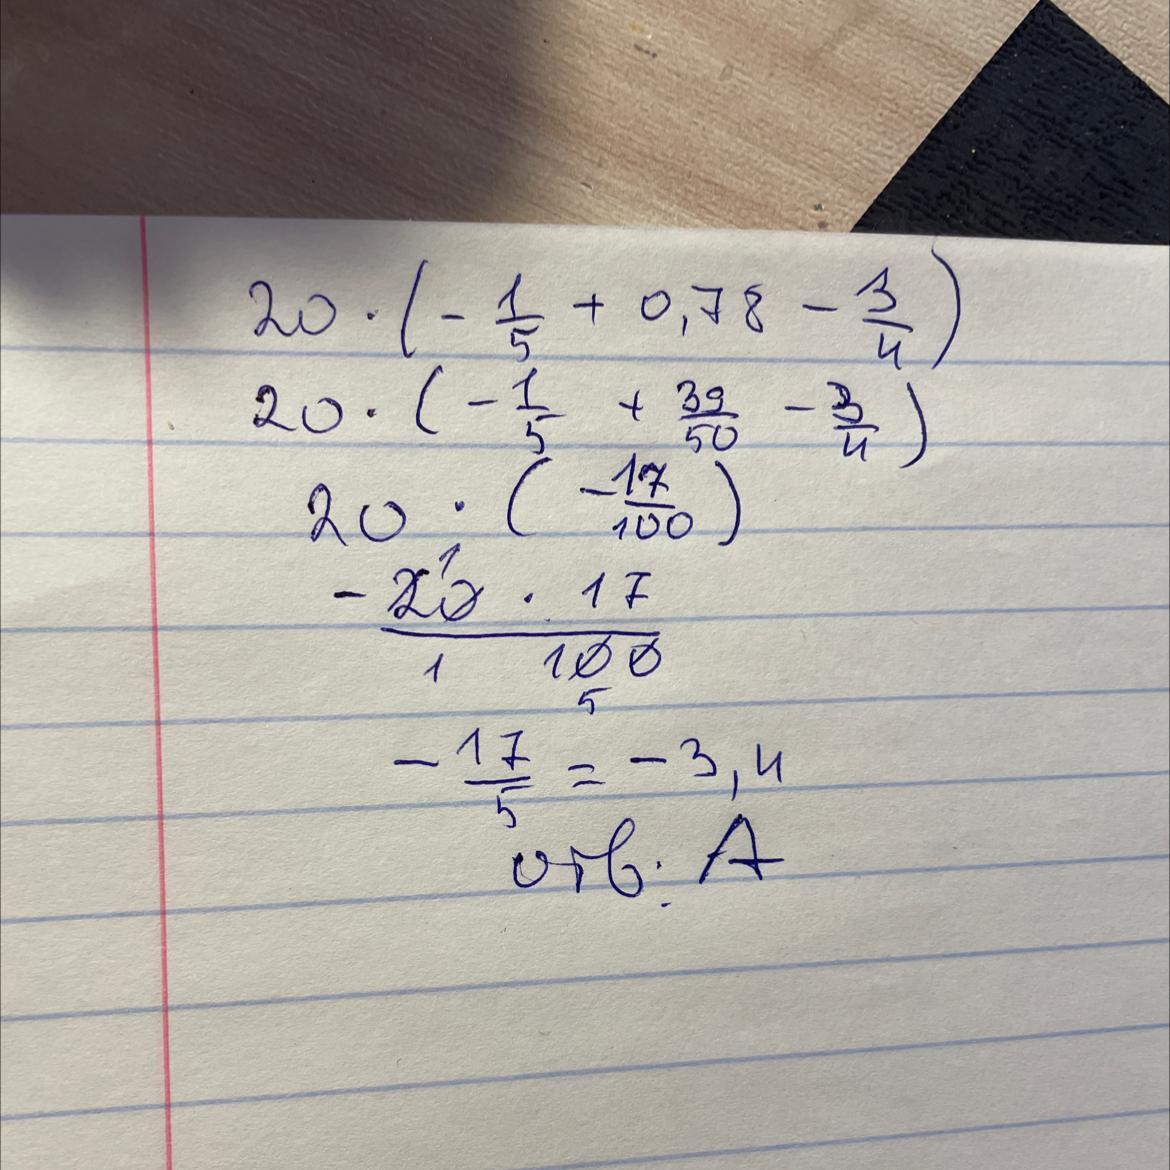 20 · (- 1/5 + 0,78 - 3/4)
20 · (- 1/5 + 39/50 - 3/4)
20 · (-17/100)
- 20 · 17 / 1 100
1 5
- 17/5 = -3,4
отв. A